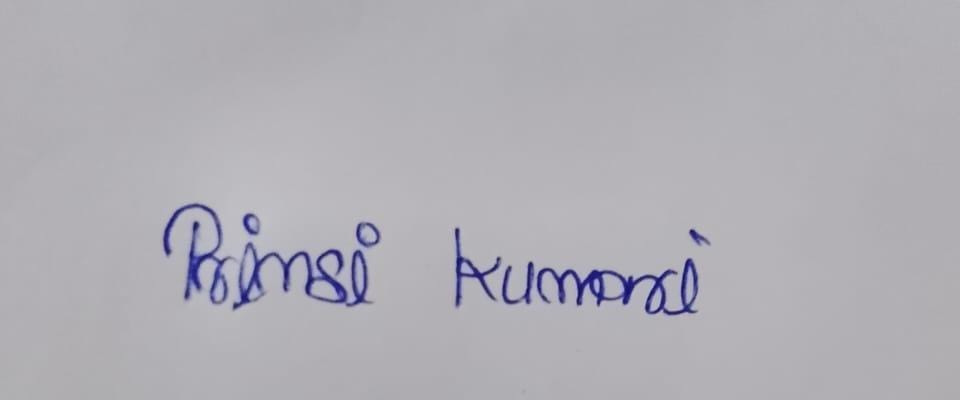 Prinsi Kumari